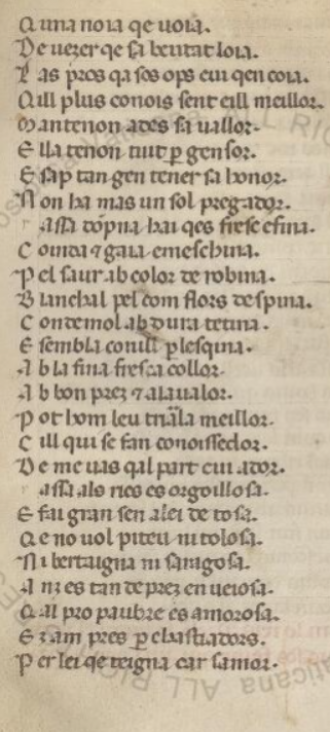 Q una noia qe uoia.
D e uezer qe sa beutat loia.
E as pros qa sos ops cui qen coia.
Q ill plus conois sent cill meillor.
M antenon ades sa uallor.
E lla tenon tuit p gensor.
E sap tan gen tener sa honor.
N on ha mas un sol pregador.
assa dompna hai qes fresc e fina.
C ointa ⁊ gaia e meschina.
P el saur ab color de robina.
B lancha l pel com flors despina.
C onde mol ab dura tetina.
E sembla conill p lesqina.
A b la fina fresca collor.
A b bon prez ⁊ ala ualor.
P ot hom leu triar la meillor.
C ill qui se fan conoissedor.
D e me uas qal part eui ador.
assa als rics es orgoillosa.
E fai gran sen a lei de tosa.
Q e no uol piteu ni tolosa.
N i bertaigna ni saragosa.
A nz es tan de prez enueiosa.
Q al pro paubre es amorosa.
E zam pres p chastiadors.
P er lei qe teigna car samor.
vaticana ALL RIGH